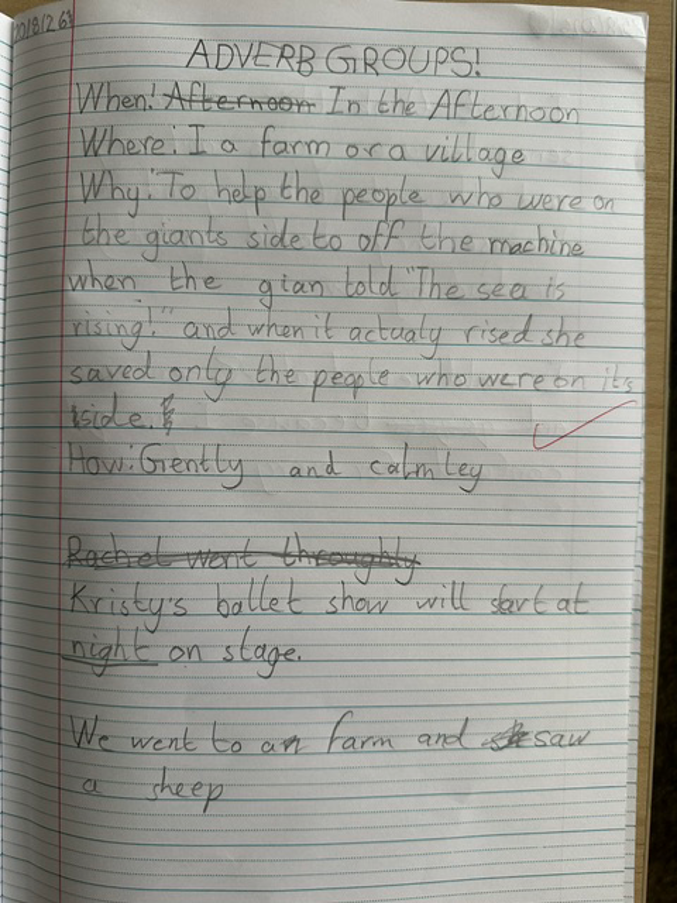 ADVERB GROUPS!
When: Afternoon In the Afternoon
Where: I a farm or a village
Why: To help the people who were on
the giants side to off the machine
when the gian told "The sea is
rising!" and when it actualy rised she
saved only the people who were on its
side.
How: Gently and calmley
Rachel went throughly
Kristy's ballet show will start at
night on stage.
We went to an farm and saw
a sheep